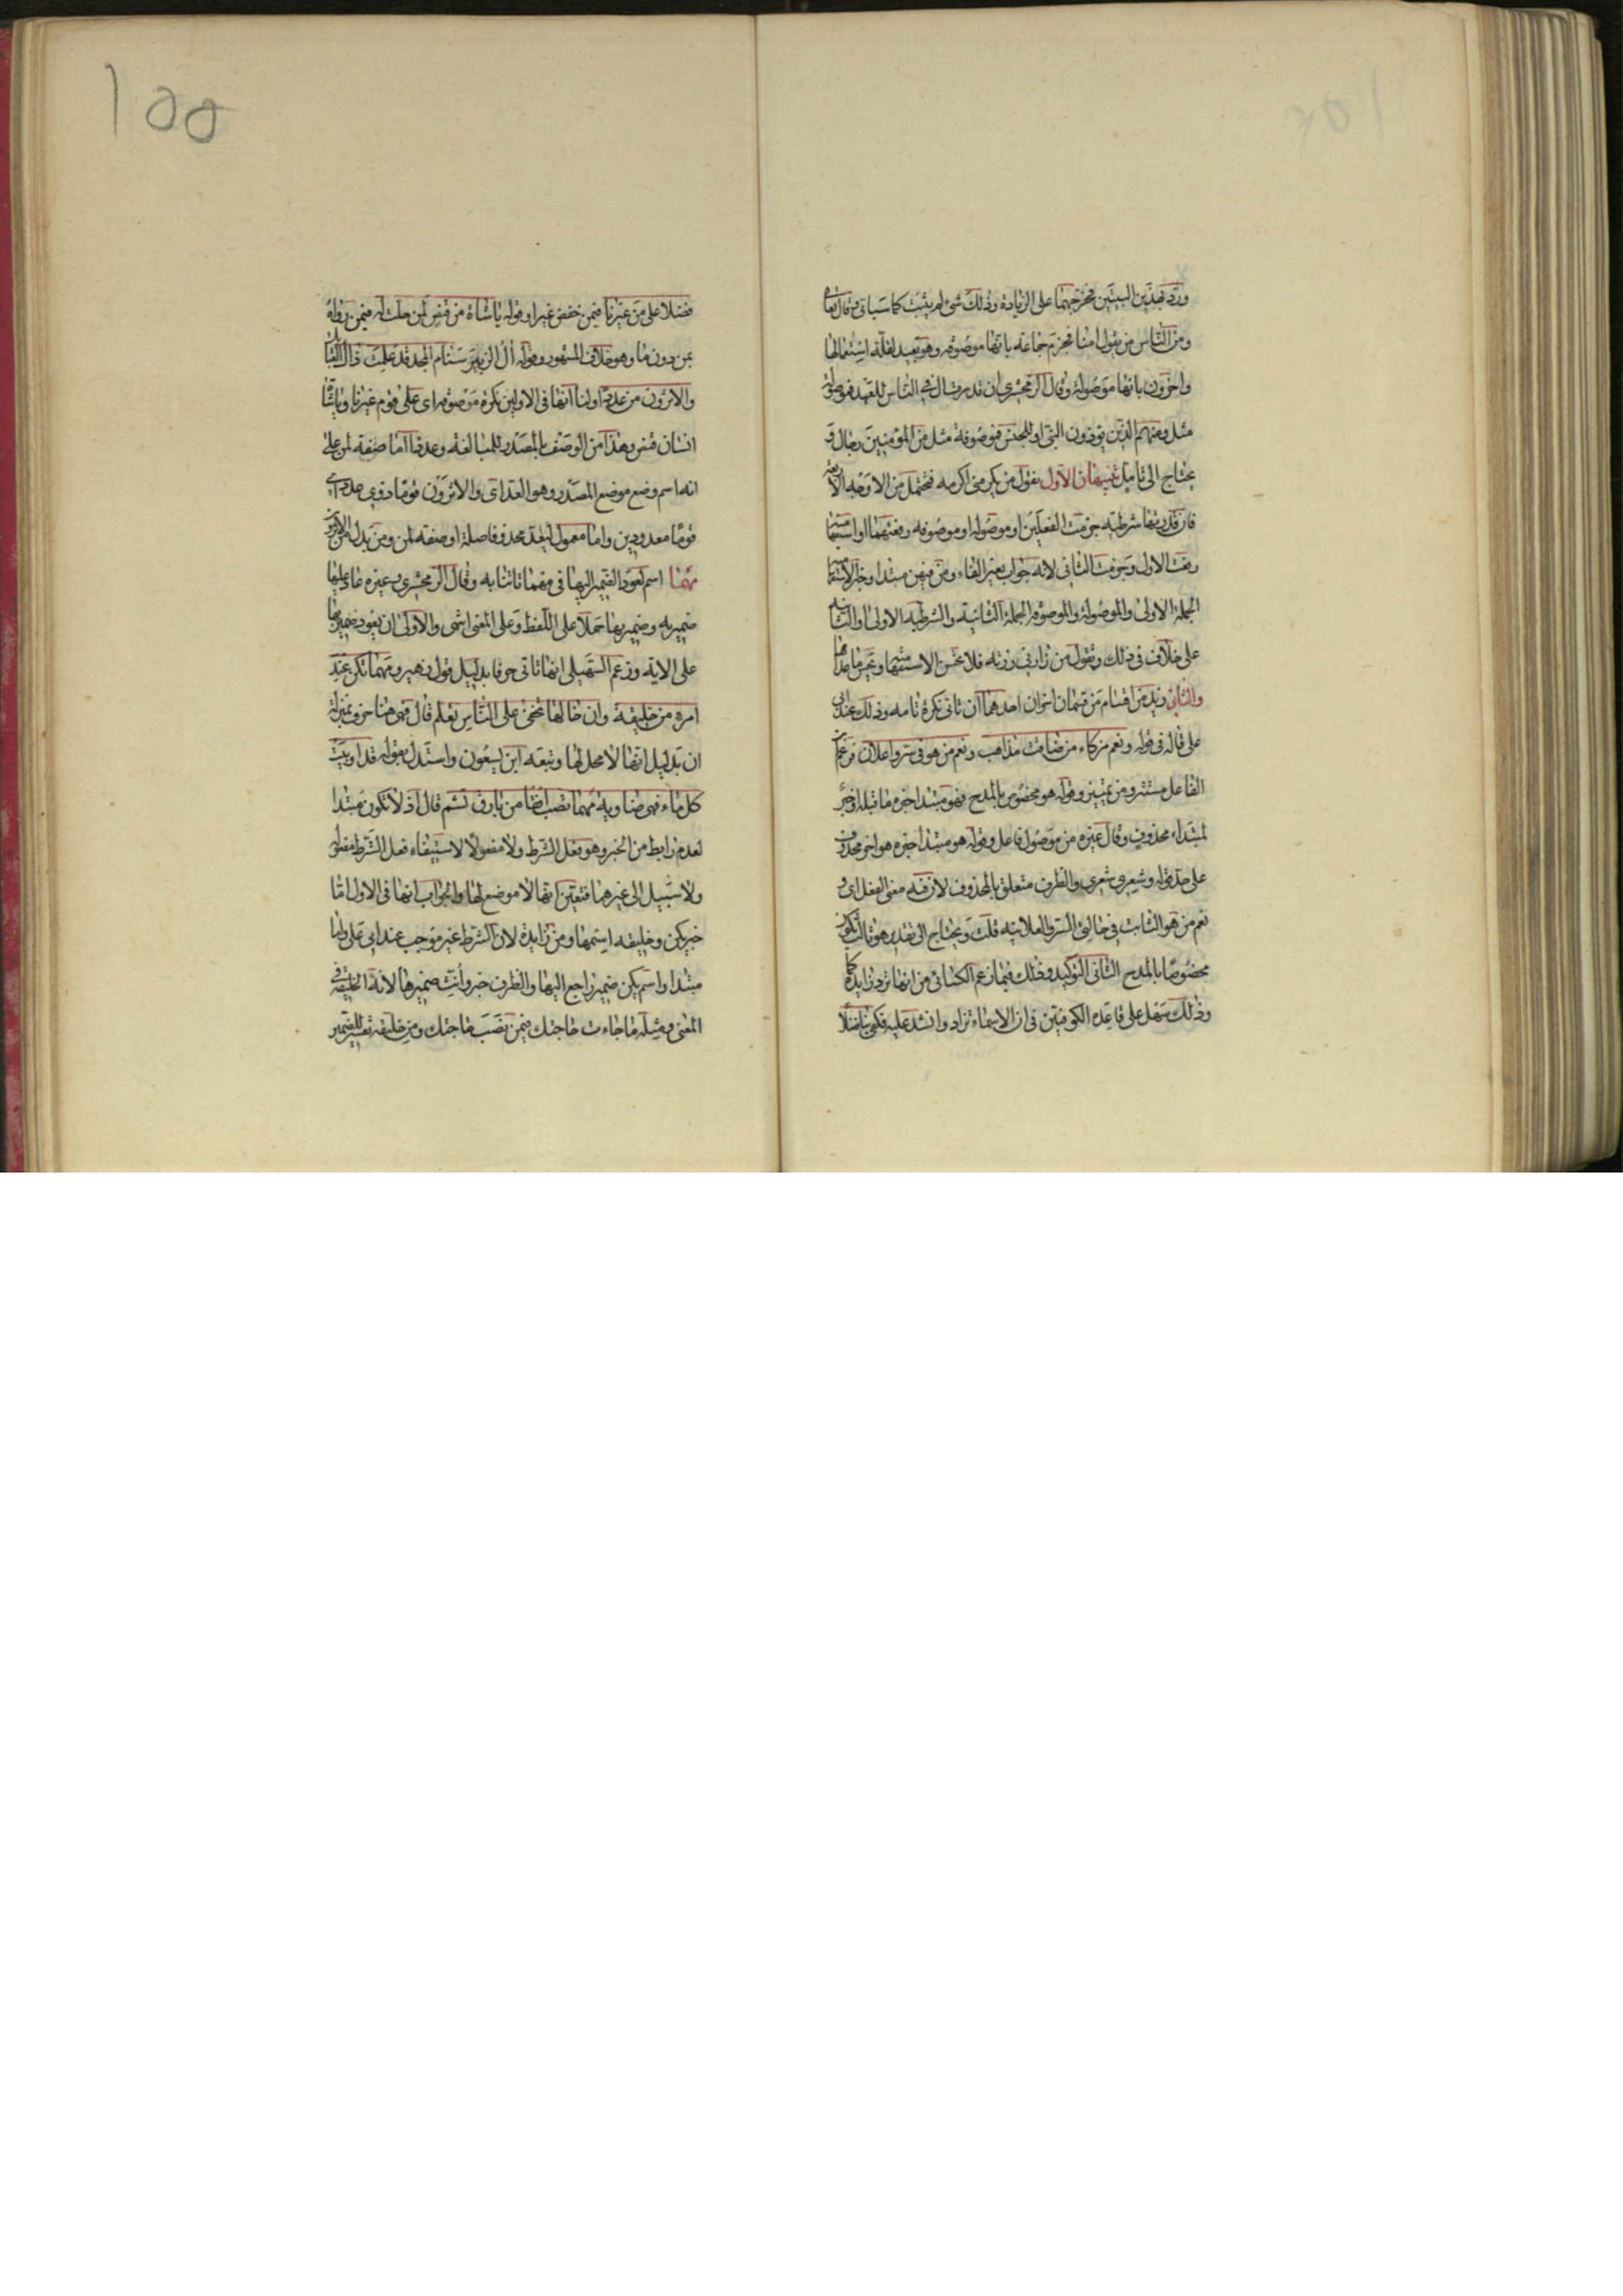 ورد بهذين البيتين فخرجهما على الزيادة وذلك شئ لم يثبت كما سياتى وقال تعالى
ومن الناس من يقول امنا فجزم جماعة بانها موصوفه وهو بعيد لقلة استعمالها
واخرون بانها موصولة وقال الزمخشرى ان قدرت ال فى الناس للعهد فموصولة
مثل ومنهم الذين يوذون النبى او للجنس فموصوفة مثل من المؤمنين رجال و
يحتاج الى تامل تنبيهان الاول تقول من يكرمنى اكرمه فتحتمل من الاوجه الاربعة
فان قدرتها شرطية جزمت الفعلين او موصولة او موصوفه رفعتهما او استفهاميه
رفعت الاول وجزمت الثانى لانه جواب بغير الفاء ومن فيهن مبتدا وخبر الاستفهاميه
الجملة الاولى والموصولة والموصوفه الجملة الثانية والشرطيه الاولى او الثانيه
على خلاف فى ذلك وتقول من زارنى زرته فلا تحسن الاستفهاميه ويحسن ما عداها
والثانى زيد من اقسام من قسمان اخران احدهما ان تاتى نكرة تامه وذلك عند ابى
على قاله فى قوله ونعم مزكاء من ضاقت مذاهبه ونعم من هو فى سر واعلان فزعم ان
الفاعل مستتر ومن تمييز وقوله هو مخصوص بالمدح فهو مبتدا خبره ما قبله او خبر
لمبتداء محذوف وقال غيره من موصول فاعل وقوله هو مبتدا خبره هو اخر محذوف
على حد قوله وشعرى شعرى والظرف متعلق بالمحذوف لان فيه معنى الفعل اى و
نعم من هو الثابت فى حالتى السر والعلانيه قلت ويحتاج الى تقدير هو ثالث يكون
مخصوصا بالمدح الثانى التوكيد وذلك فيما زعم الكسائى من انها ترد زايدة كما
وذلك سهل على قاعدة الكوفيين فى ان الاسماء تزاد وانشد عليه فكفى بنا فضلا
١٥٥
فضلا على من غيرنا فيمن خفض غيرا وقوله يا شاة من قنص لمن حلت له فيمن رواه
بمن دون ما وهو خلاف المشهور وقوله ال الزبير سنام المجد قد علمت ذاك القبايل
والاثرون من عددا ولنا انها فى الاولين نكرة موصوفه اى على قوم غيرنا ويا شاة
انسان قنص وهذا من الوصف بالمصدر للمبالغة وعددا اما صفة لمن على
انه اسم وضع موضع المصدر وهو العد اى والاثرون قوما ذوى عدد اى
قوما معدودين واما معمول ليعد محذوفا صلة او صفة لمن ومن بدل من الاثرون
مهما اسم لعود الضمير اليها فى مهما تاتنا به وقال الزمخشرى وغيره عاد عليها
ضمير به وضمير بها حملا على اللفظ وعلى المعنى انتهى والاولى ان يعود ضمير بها
على الايه وزعم السهيلى انها تاتى حرفا بدليل قول زهير ومهما تكن عند
امرئ من خليقة وان خالها تخفى على الناس تعلم قال فهى هنا حرف بمنزلة
ان بدليل انها لا محل لها وتبعه ابن يسعون واستدل بقوله قد اوبيت
كل ماء فهى ضاوية مهما تصب افقا من بارق تشم قال اذ لا تكون مبتدا
لعدم رابط من الخبر وهو فعل الشرط ولا مفعولا لاستيفاء فعل الشرط مفعوله
ولا سبيل الى غيرهما فتعين انها لا موضع لها والجواب انها فى الاول اما
خبر يكن وخليقه اسمها ومن زايدة لان الشرط غير موجب عند ابى على واما
مبتدا واسم يكن ضمير راجع اليها والظرف خبر وانث ضميرها لانه الخليقه فى
المعنى ومثله ما جاءت حاجتك فيمن نصب حاجتك ومن خليقه تفسير للضمير